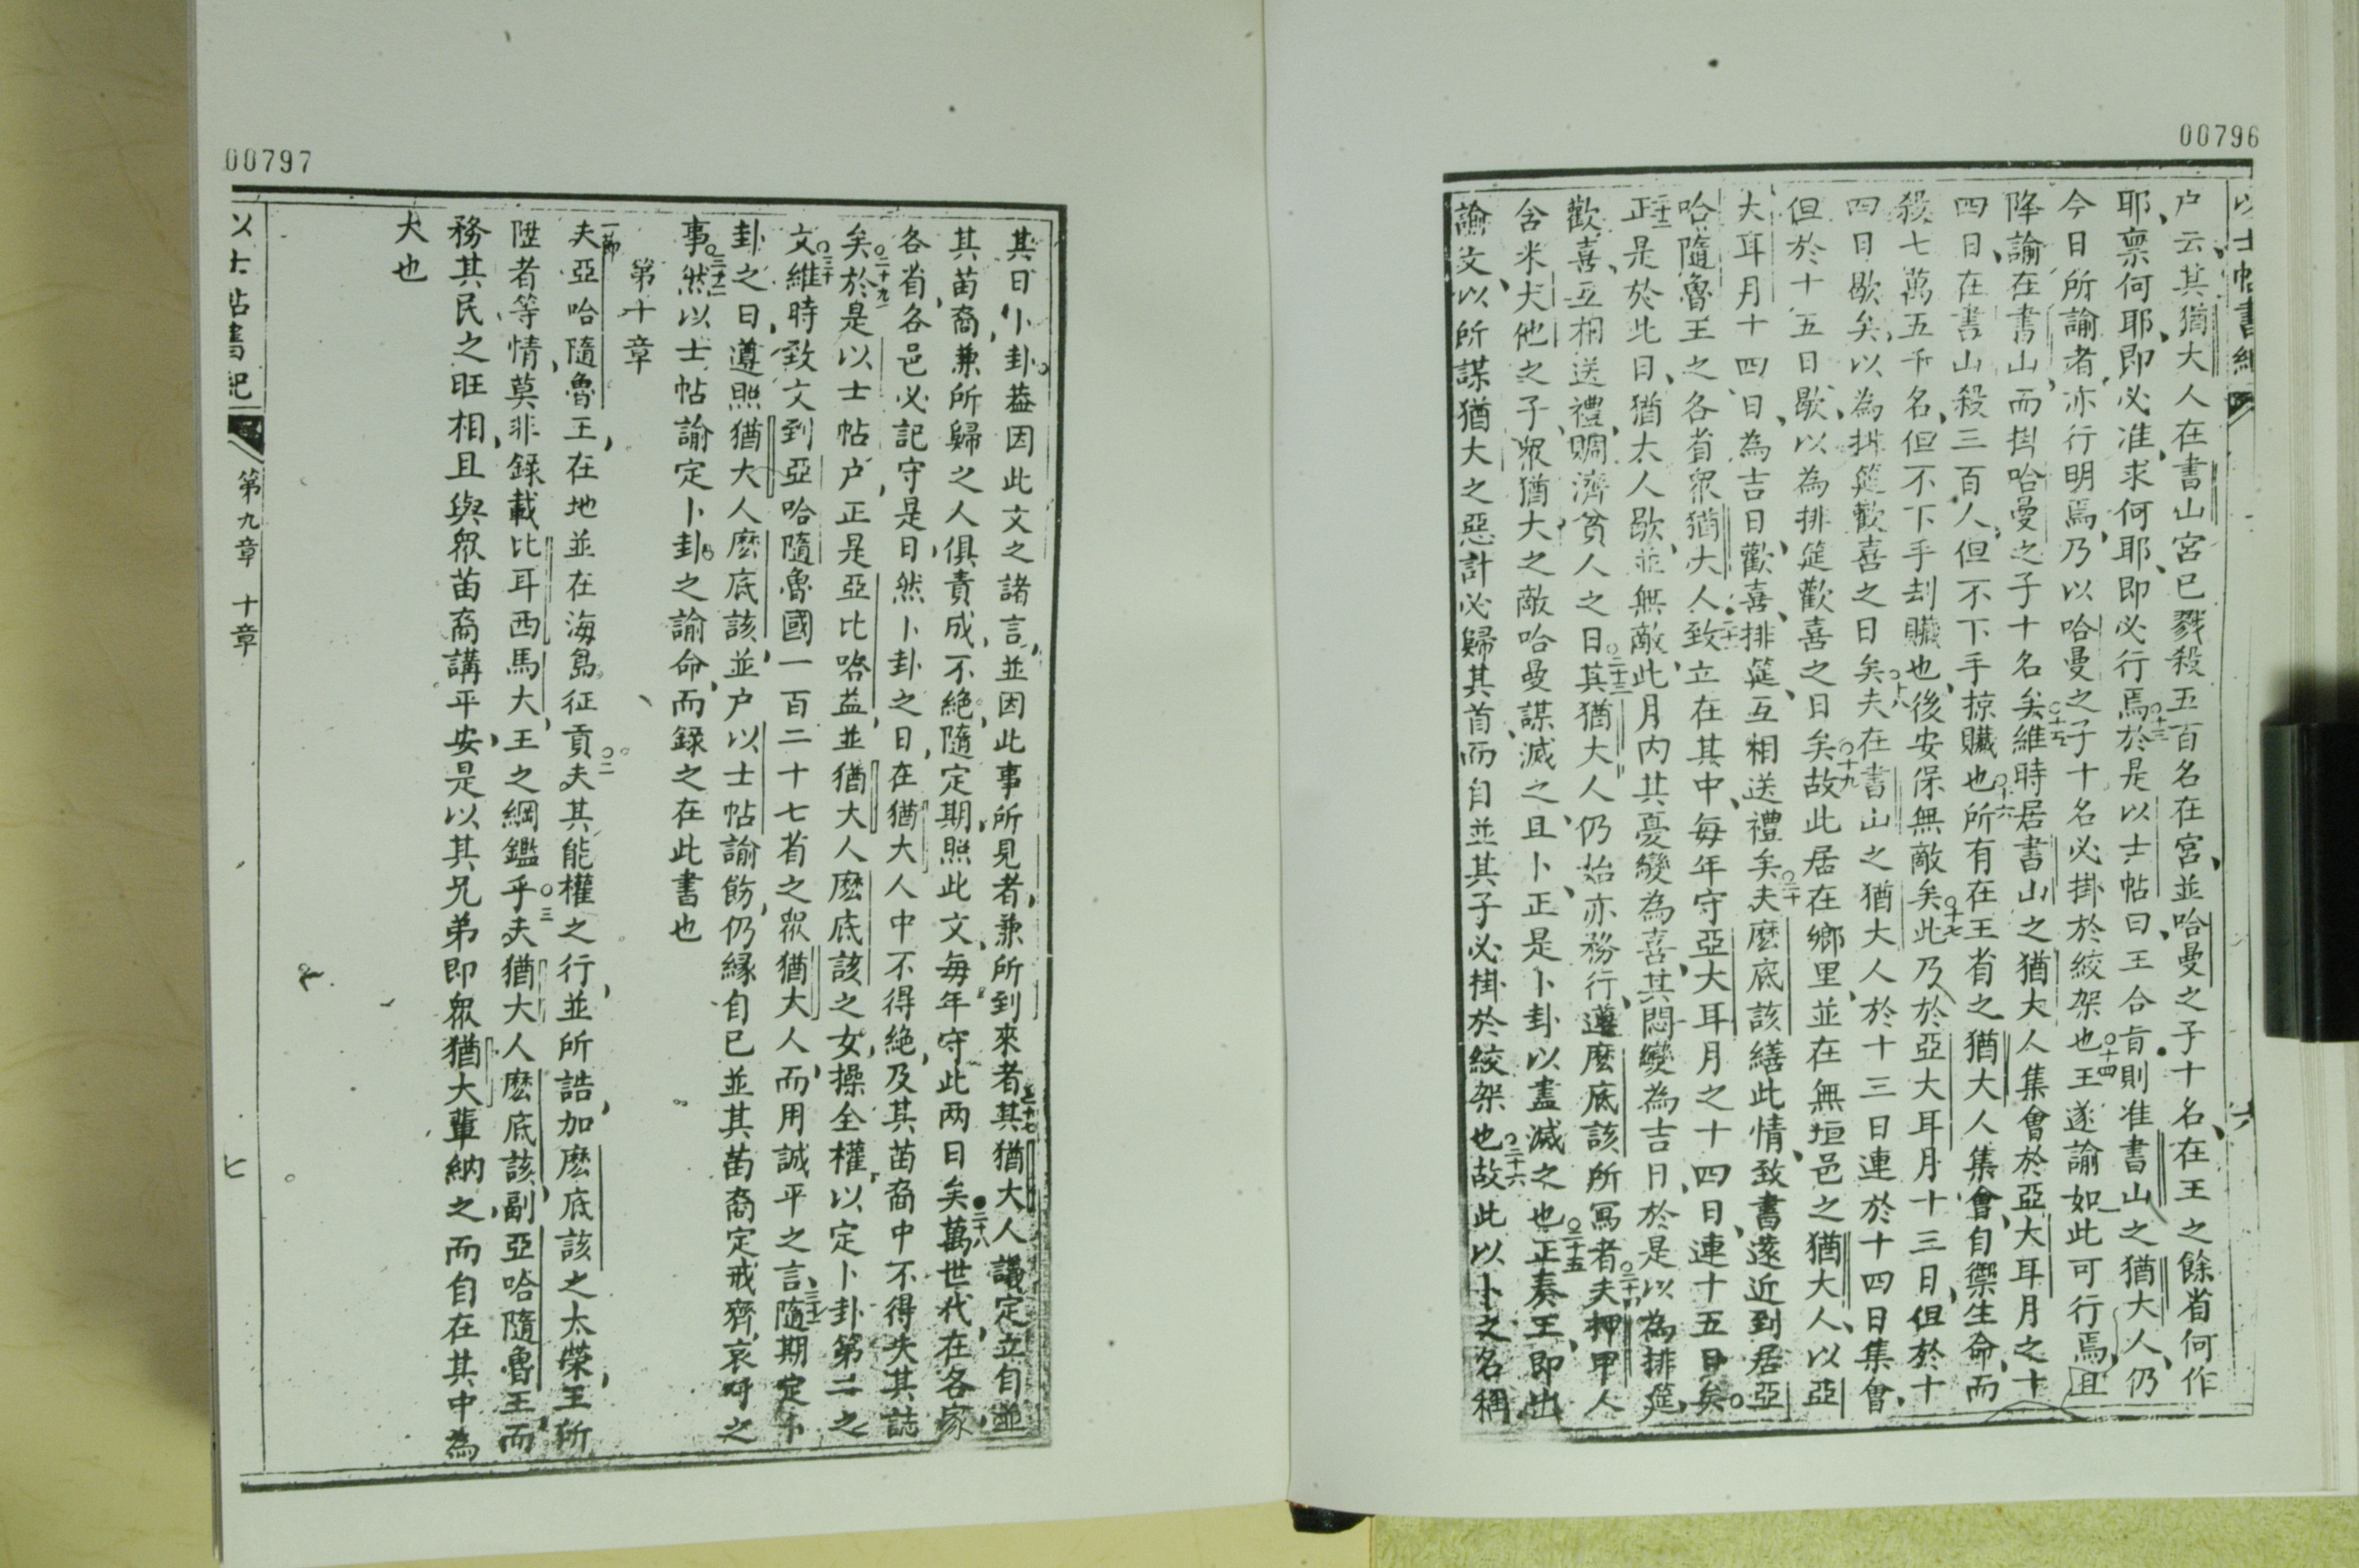 00796
以士帖書紀
户云其猶大人在書山宮已戮殺五百名在宮並哈曼之子十名在王之餘省何作
耶禀何耶即必准求何耶即必行焉○十三於是以士帖曰王合肯則准書山之猶大人仍
今日所諭者亦行明焉乃以哈曼之子十名必掛於絞架也○十四王遂諭如此可行焉且
降諭在書山而掛哈曼之子十名矣○十五維時居書山之猶大人集會於亞大耳月之十
四日在書山殺三百人但不下手掠贜也○十六所有在王省之猶大人集會自禦生命而
殺七萬五千名但不下手刦贜也後安保無敵矣○十七此乃於亞大耳月十三日但於十
四日歇矣以為排筵歡喜之日矣○十八夫在書山之猶大人於十三日連於十四日集會
但於十五日歇以為排筵歡喜之日矣○十九故此居在鄉里並在無垣邑之猶大人以亞
大耳月十四日為吉日歡喜排筵互相送禮矣○二十夫麽底該繕此情致書遂近到居亞
哈隨魯王之各省衆猶大人致立在其中每年守亞大耳月之十四日連十五日矣
正是於此日猶太人歇並無敵此月內其憂變為喜其悶變為吉日於是以為排筵
歡喜互相送禮賙濟貧人之日○二十三其猶大人仍始亦務行遵麽底該所寫者○二十四夫押甲人
含米大他之子衆猶大之敵哈曼謀滅之且卜正是卜卦以盡滅之也○二十五正奏王即出
諭文以所謀猶大之惡計必歸其首而自並其子必掛於絞架也○二十六故此以卜之名稱
六
00797
其日卜卦葢因此文之諸言並因此事所見者兼所到來者○二十七其猶大人議定立自並
其苗裔兼所歸之人俱責成不絕隨定期照此文每年守此两日矣○二十八萬世代在各家
各省各邑必記守是日然卜卦之日在猶大人中不得絕及其苗裔中不得失其誌
矣○二十九於是以士帖户正是亞比咯益並猶大人麽底該之女操全權以定卜卦第二之
文○三十維時致文到亞哈隨魯國一百二十七省之衆猶大人而用誠平之言○三十一隨期定卜
卦之日遵照猶大人麽底該並户以士帖諭飭仍緣自已並其苗裔定戒齊哀呼之
事○三十二然以士帖諭定卜卦之諭命而録之在此書也
第十章
一節夫亞哈隨魯王在地並在海島征貢○二夫其能權之行並所誥加麽底該之太榮王所
陞者等情莫非錄載比耳西馬大王之綱鑑乎○三夫猶大人麽底該副亞哈隨魯王而
務其民之旺相且與衆苗裔講平安是以其兄弟即衆猶大輩納之而自在其中為
大也
以士帖書紀
第九章 十章
七